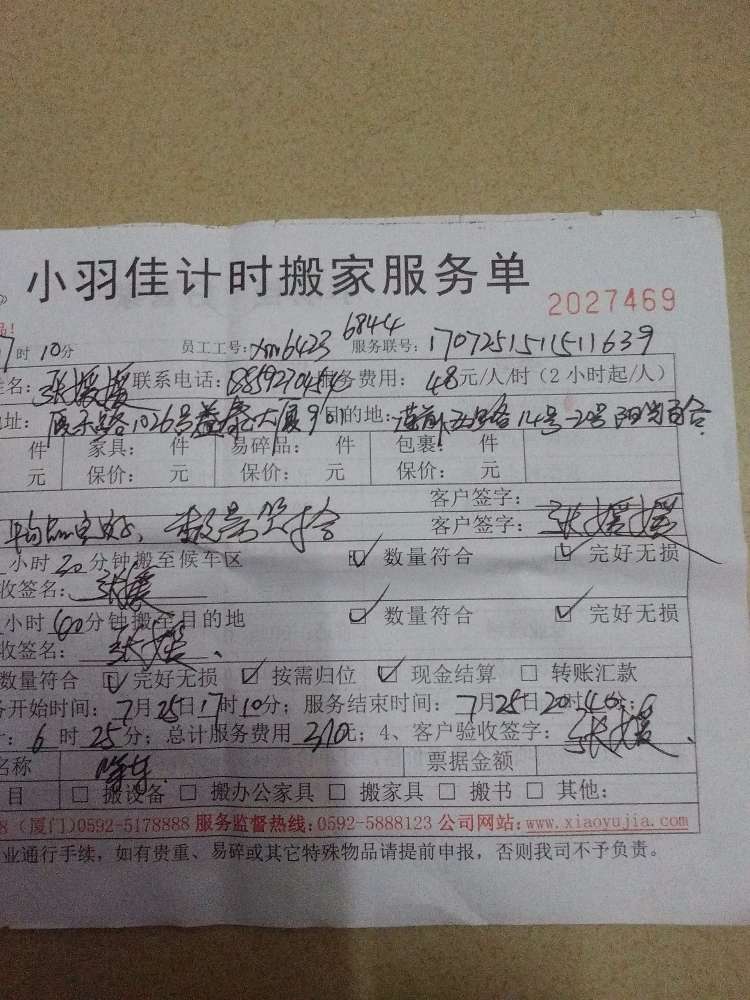 小羽佳计时搬家服务单
2027469
品!
7时10分 员工工号: xm6423 6844 服务联号: 1707251511511639
姓名: 张媛媛 联系电话: 务费用: 48元/人/时(2小时起/人)
地址: 1026号益康大厦9 目的地: 14号-2号阳光百合
件 家具: 件 易碎品: 件 包裹: 件
元 保价: 元 保价: 元 保价: 元
客户签字:
客户签字: 张媛媛
小时20分钟搬至候车区 ☑ 数量符合 ☑ 完好无损
收签名: 张媛
小时60分钟搬至目的地 ☑ 数量符合 ☑ 完好无损
收签名: 张媛
数量符合 ☑ 完好无损 ☑ 按需归位 ☑ 现金结算 □ 转账汇款
务开始时间: 7月25日17时10分; 服务结束时间: 7月25日20时46分;
: 6时25分; 总计服务费用310元; 4、客户验收签字: 张媛
名称 票据金额
目 □ 搬设备 □ 搬办公家具 □ 搬家具 □ 搬书 □ 其他:
8 (厦门)0592-5178888 服务监督热线:0592-5888123 公司网站:www.xiaoyujia.com
业通行手续,如有贵重、易碎或其它特殊物品请提前申报,否则我司不予负责。